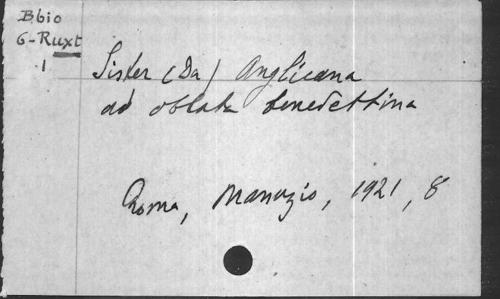 Bbio
G-Ruxt
1
Sister (Da) Anglicana
ad oblata benedettina
Roma, Manuzio, 1921, 8